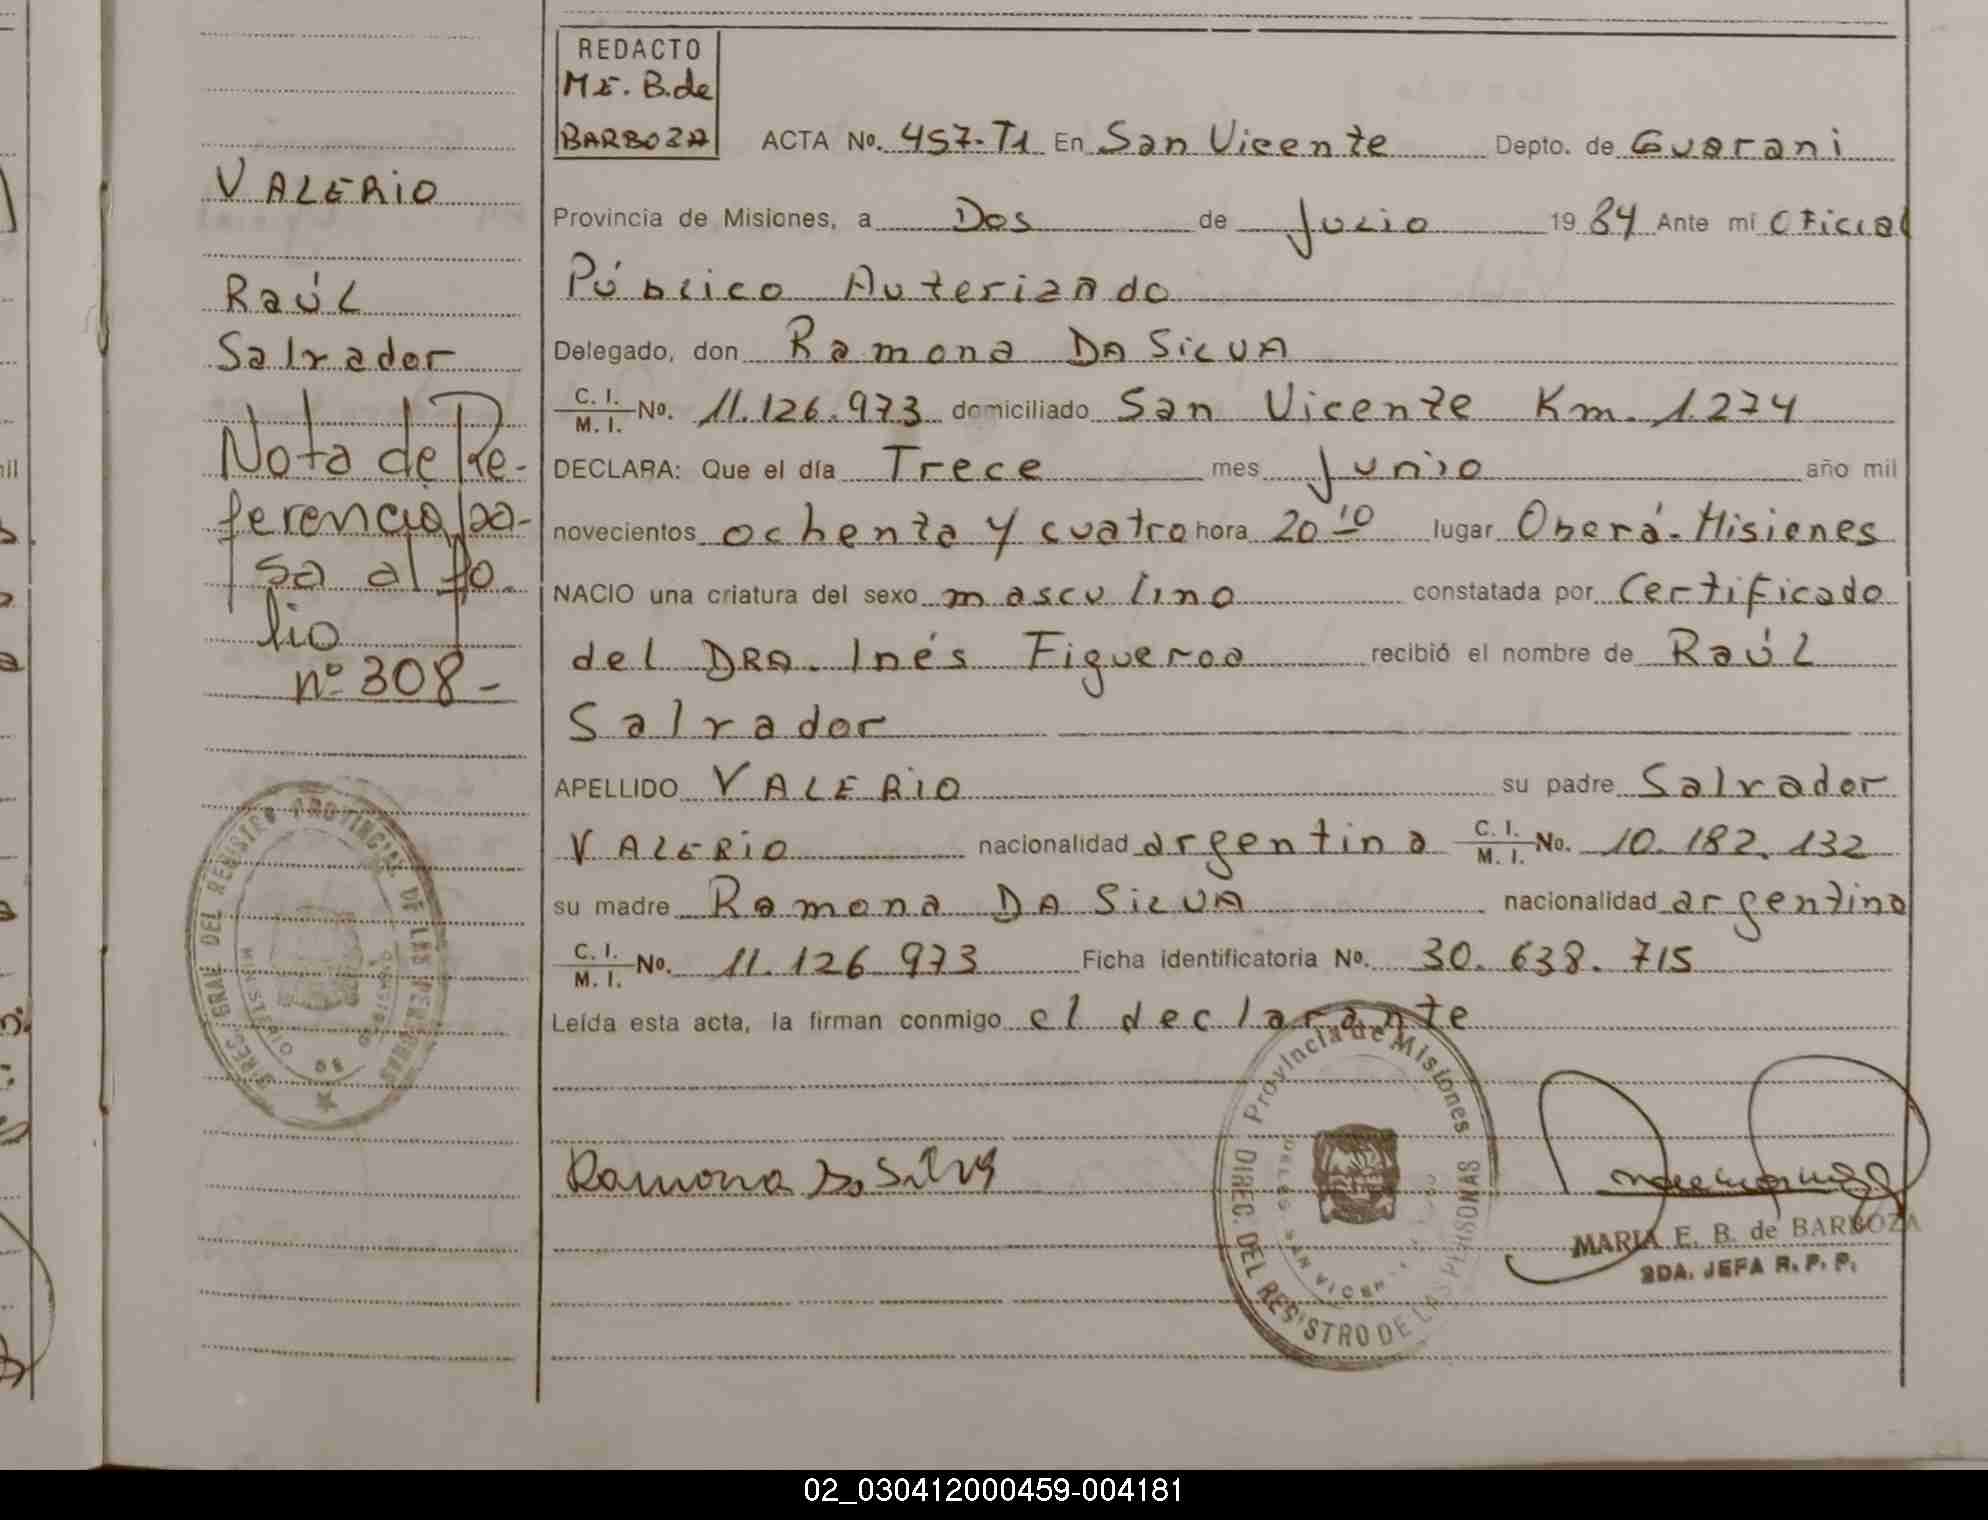 REDACTO
ME. B. de
BARBOZA
ACTA No. 457-T1 En San Vicente Depto. de Guarani
Provincia de Misiones, a Dos de Julio 1984 Ante mí Oficial
Público Autorizado
Delegado, don Ramona DA SILVA
C. I. / M. I. No. 11.126.973 domiciliado San Vicente Km. 1.274
DECLARA: Que el día Trece mes Junio año mil
novecientos ochenta y cuatro hora 20 10 lugar Oberá-Misiones
NACIO una criatura del sexo masculino constatada por Certificado
del DRA. Inés Figueroa recibió el nombre de Raúl
Salvador
APELLIDO VALERIO su padre Salvador
VALERIO nacionalidad argentina C. I. / M. I. No. 10.182.132
su madre Ramona DA SILVA nacionalidad argentina
C. I. / M. I. No. 11.126.973 Ficha identificatoria No. 30.638.715
Leída esta acta, la firman conmigo el declarante
Ramona Da Silva
MARIA E. B. de BARBOZA
2DA. JEFA R. P. P.
Provincia de Misiones
DIREC. DEL REGISTRO DE LAS PERSONAS
VALERIO
Raúl
Salvador
Nota de Re-
ferencia pa-
sa al fo-
lio
nº 308-
DIREC. GRAL. DEL REGISTRO PROVINCIAL DE LAS PERSONAS
MINISTERIO DE GOBIERNO
02_030412000459-004181